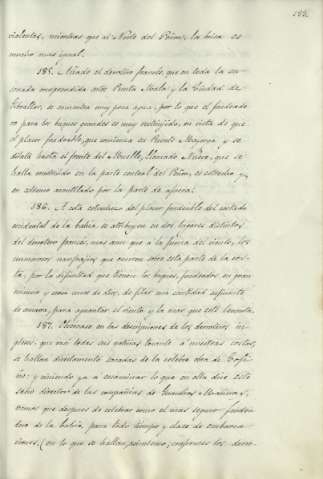 violentas, mientras que al Norte del Peñon, la brisa es
mucho mas igual.
185. Añade el derrotero francés, que en toda la en-
senada comprendida entre Punta Mala y la Ciudad de
Gibraltar, se encuentra muy poca agua, por lo que el fondeado
ro para los buques grandes es muy restringido, en vista de que
el placer fondeable, que comienza en Puente Mayorga, y se
dilata hasta el frente del Muelle, llamado Nuevo, que se
halla construido en la parte central del Peñon, es estrecho y
en extremo acantilado por la parte de afuera.
186. A esta estrechez del placer fondeable del costado
occidental de la bahia, se atribuyen en dos lugares distintos
del derrotero francés, mas aun que á la fuerza del viento, los
numerosos naufragios que ocurren sobre esta parte de la cos-
ta, por la dificultad que tienen los buques, fondeados en gran
número y cerca unos de otros, de filar una cantidad suficiente
de cadena, para aguantar el viento y la mar que este levanta.
187. en las descripciones de los derroteros in-
gleses, que casi todas sus noticias tocante á nuestras costas,
se hallan directamente sacadas de la celebre obra de Tofi-
ño: y viniendo ya á examinar lo que en ella dice este
sabio director de las compañias de Guardias Marinas,
vemos que despues de celebrar como el mas seguro fondea-
dero de la bahia, para todo tiempo y clase de embarca-
ciones, (en lo que se hallan conformes los derro-